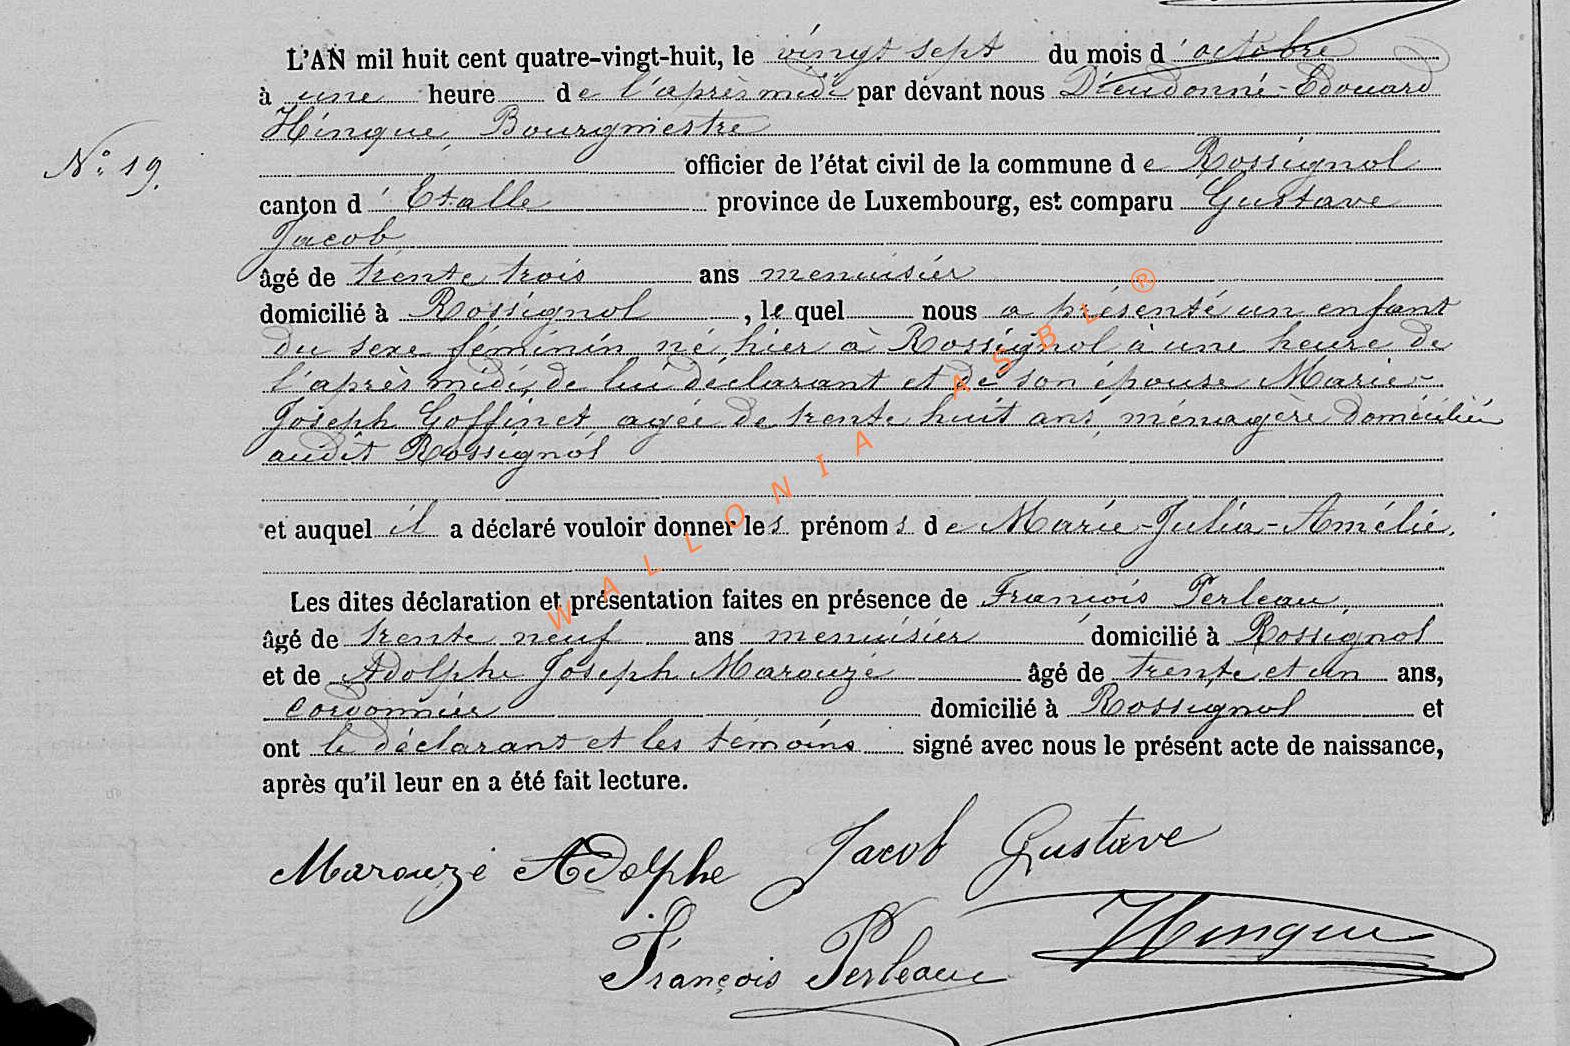 L'AN mil huit cent quatre-vingt-huit, le vingt sept du mois d'octobre
à une heure de l'après midi par devant nous Dieudonné-Edouard
Hinque, Bourgmestre
N° 19.
officier de l'état civil de la commune de Rossignol
canton d'Etalle province de Luxembourg, est comparu Gustave
Jacob
âgé de trente trois ans menuisier
domicilié à Rossignol, le quel nous a présenté un enfant
du sexe féminin né hier à Rossignol à une heure de
l'après midi, de lui déclarant et de son épouse Marie-
Joseph Goffinet, agée de trente huit ans, ménagère domiciliée
audit Rossignol
et auquel il a déclaré vouloir donner les prénoms de Marie-Julia-Amélie.
Les dites déclaration et présentation faites en présence de François Perleau,
âgé de trente neuf ans menuisier domicilié à Rossignol
et de Adolphe Joseph Marouzé âgé de trente et un ans,
cordonnier domicilié à Rossignol et
ont le déclarant et les témoins signé avec nous le présent acte de naissance,
après qu'il leur en a été fait lecture.
Marouzé Adolphe Jacob Gustave
François Perleau Hinque
WALLONIA ASBL ®